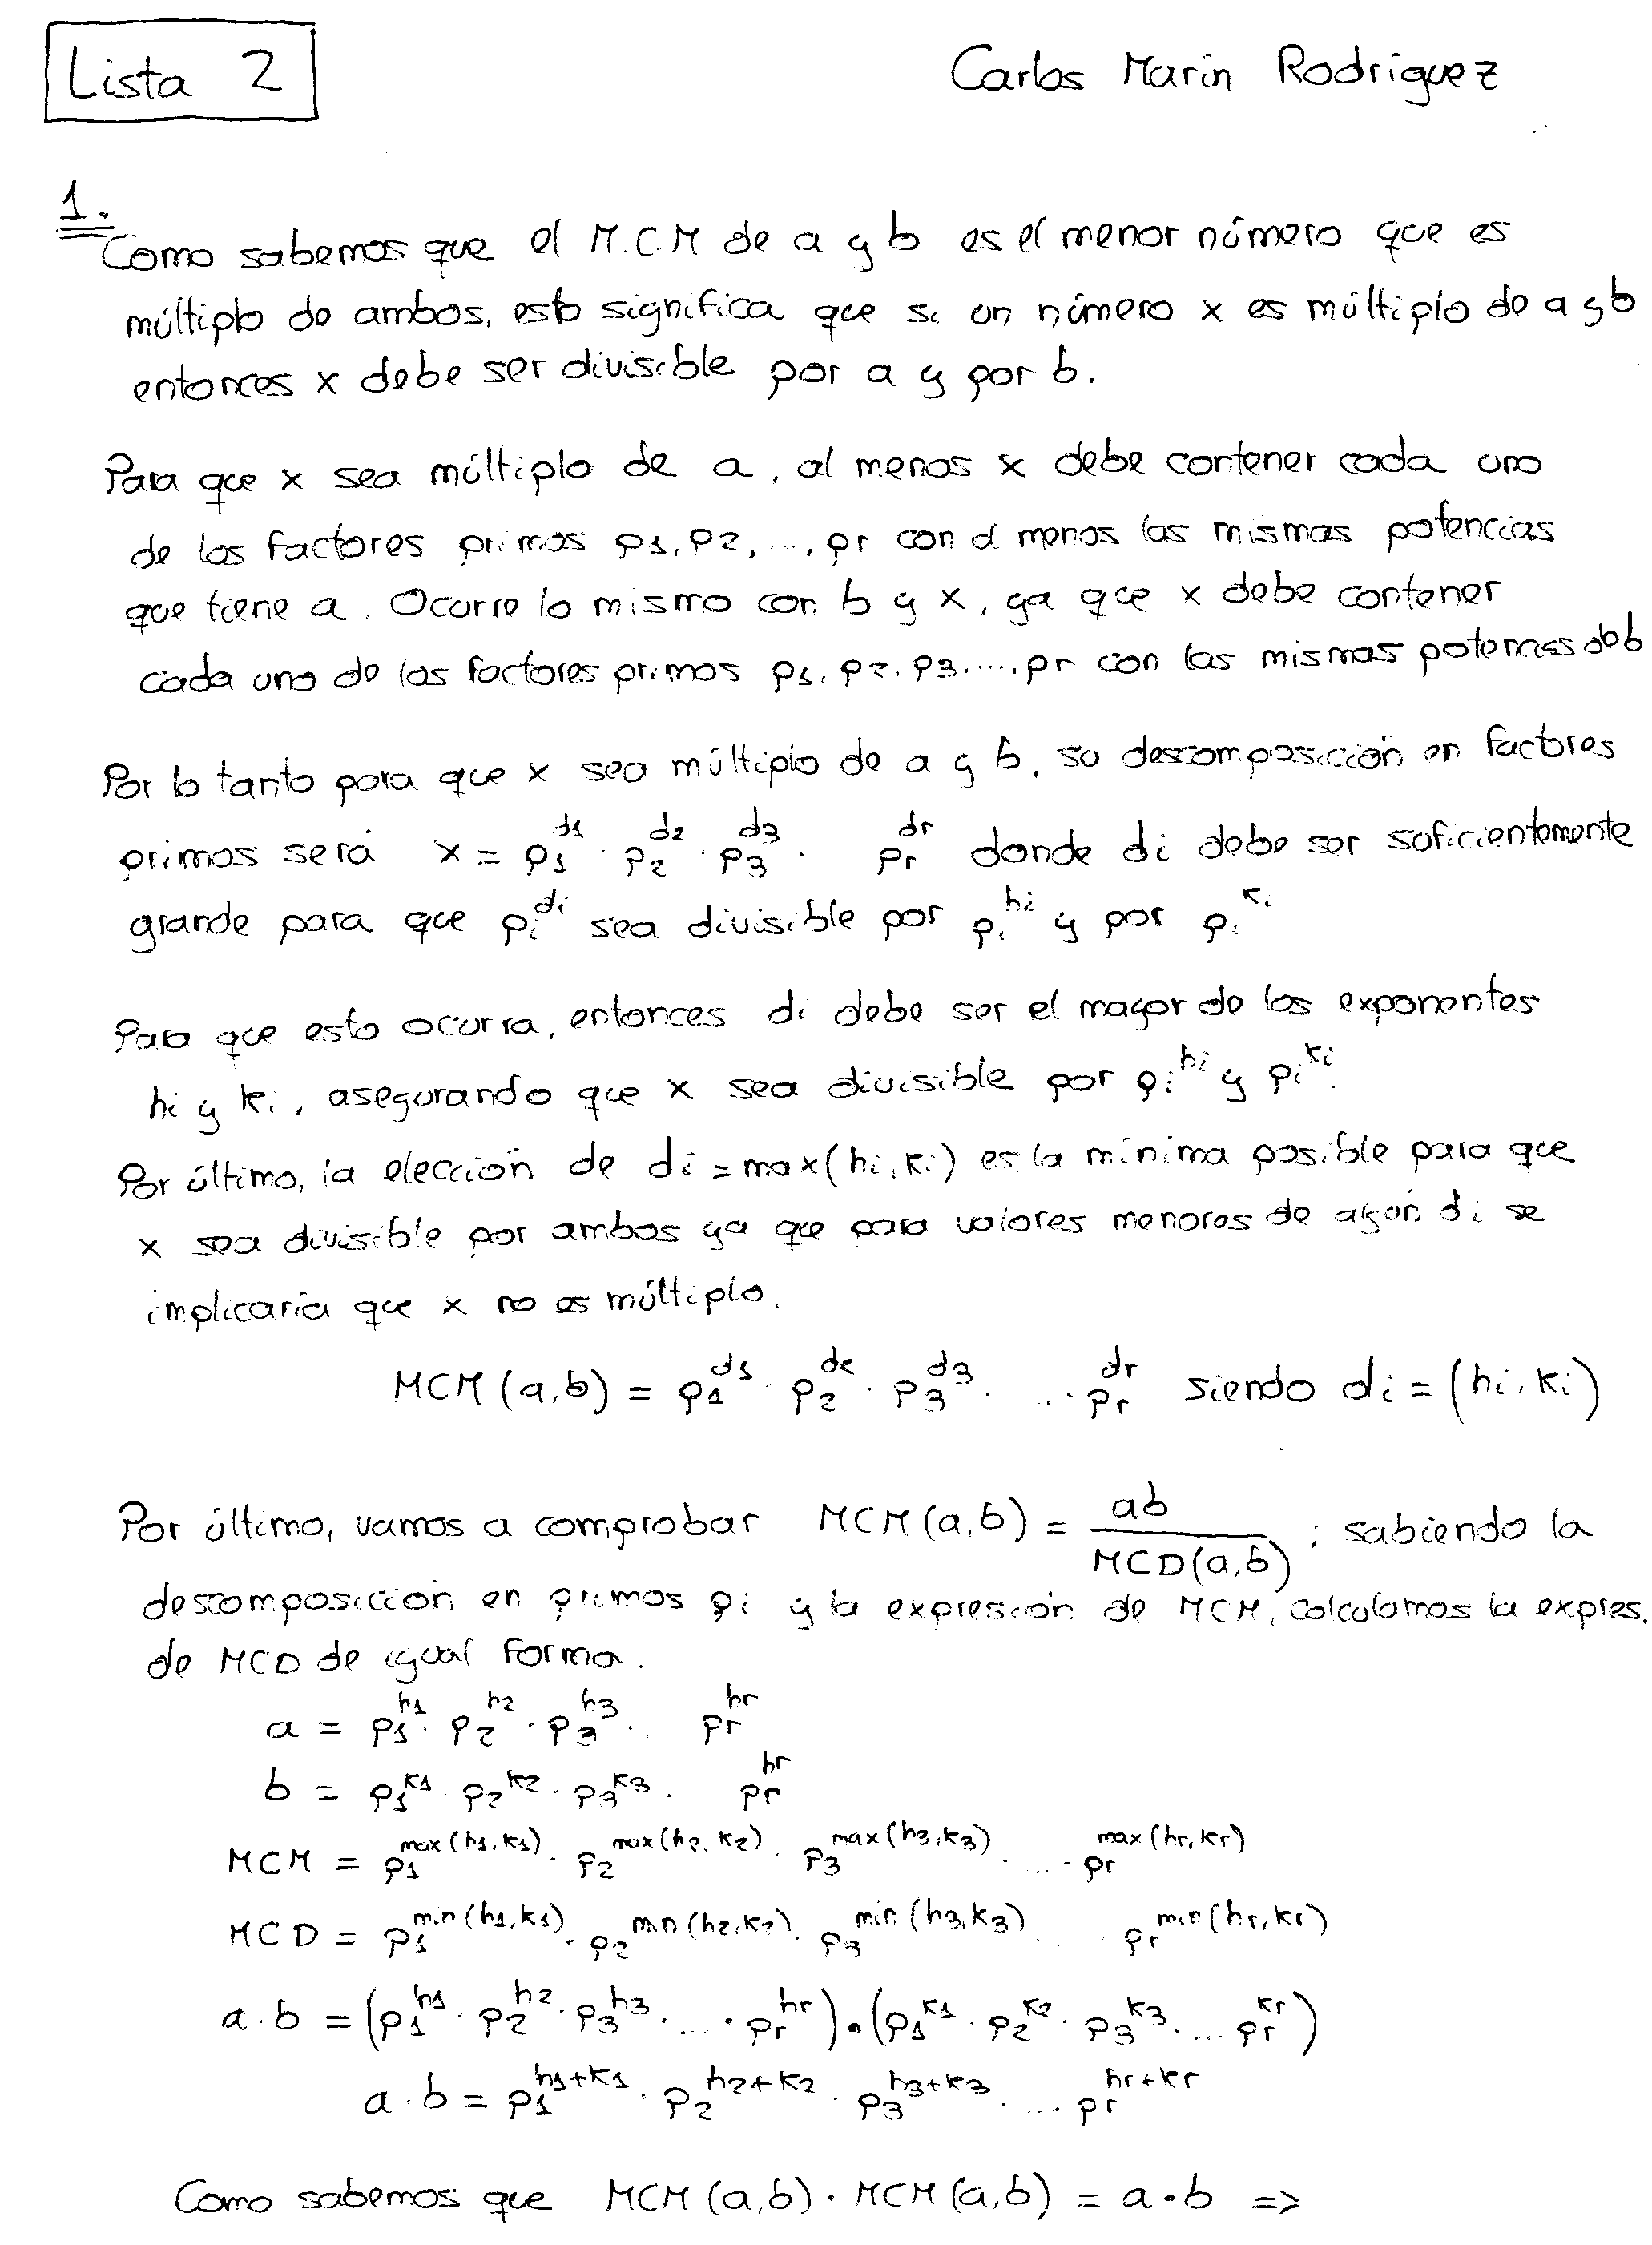 Lista 2
Carlos Marín Rodríguez
1.
Como sabemos que el M.C.M de a y b es el menor número que es
múltiplo de ambos, esto significa que si un número x es múltiplo de a y b
entonces x debe ser divisible por a y por b.
Para que x sea múltiplo de a, al menos x debe contener cada uno
de los factores primos p1, p2, ..., pr con al menos las mismas potencias
que tiene a. Ocurre lo mismo con b y x, ya que x debe contener
cada uno de los factores primos p1, p2, p3, ..., pr con las mismas potencias de b
Por lo tanto para que x sea múltiplo de a y b, su descomposición en factores
primos será x = p1^d1 · p2^d2 · p3^d3 · .. pr^dr donde di debe ser suficientemente
grande para que pi^di sea divisible por pi^hi y por pi^ki
Para que esto ocurra, entonces di debe ser el mayor de los exponentes
hi y ki, asegurando que x sea divisible por pi^hi y pi^ki.
Por último, la elección de di = max(hi, ki) es la mínima posible para que
x sea divisible por ambos ya que para valores menores de algún di se
implicaría que x no es múltiplo.
MCM (a,b) = p1^d1 · p2^d2 · p3^d3 · ... · pr^dr siendo di = (hi, ki)
Por último, vamos a comprobar MCM (a,b) = ab / MCD(a,b) ; sabiendo la
descomposición en primos pi y la expresión de MCM, calculamos la expres.
de MCD de igual forma.
a = p1^h1 · p2^h2 · p3^h3 · ... pr^hr
b = p1^k1 · p2^k2 · p3^k3 · .. pr^hr
MCM = p1^max(h1,k1) · p2^max(h2,k2) · p3^max(h3,k3) · ... · pr^max(hr,kr)
MCD = p1^min(h1,k1) · p2^min(h2,k2) · p3^min(h3,k3) · ... pr^min(hr,kr)
a · b = (p1^h1 · p2^h2 · p3^h3 · ... · pr^hr) · (p1^k1 · p2^k2 · p3^k3 · ... pr^kr)
a · b = p1^h1+k1 · p2^h2+k2 · p3^h3+k3 · ... pr^hr+kr
Como sabemos que MCM (a,b) · MCM (a,b) = a · b =>